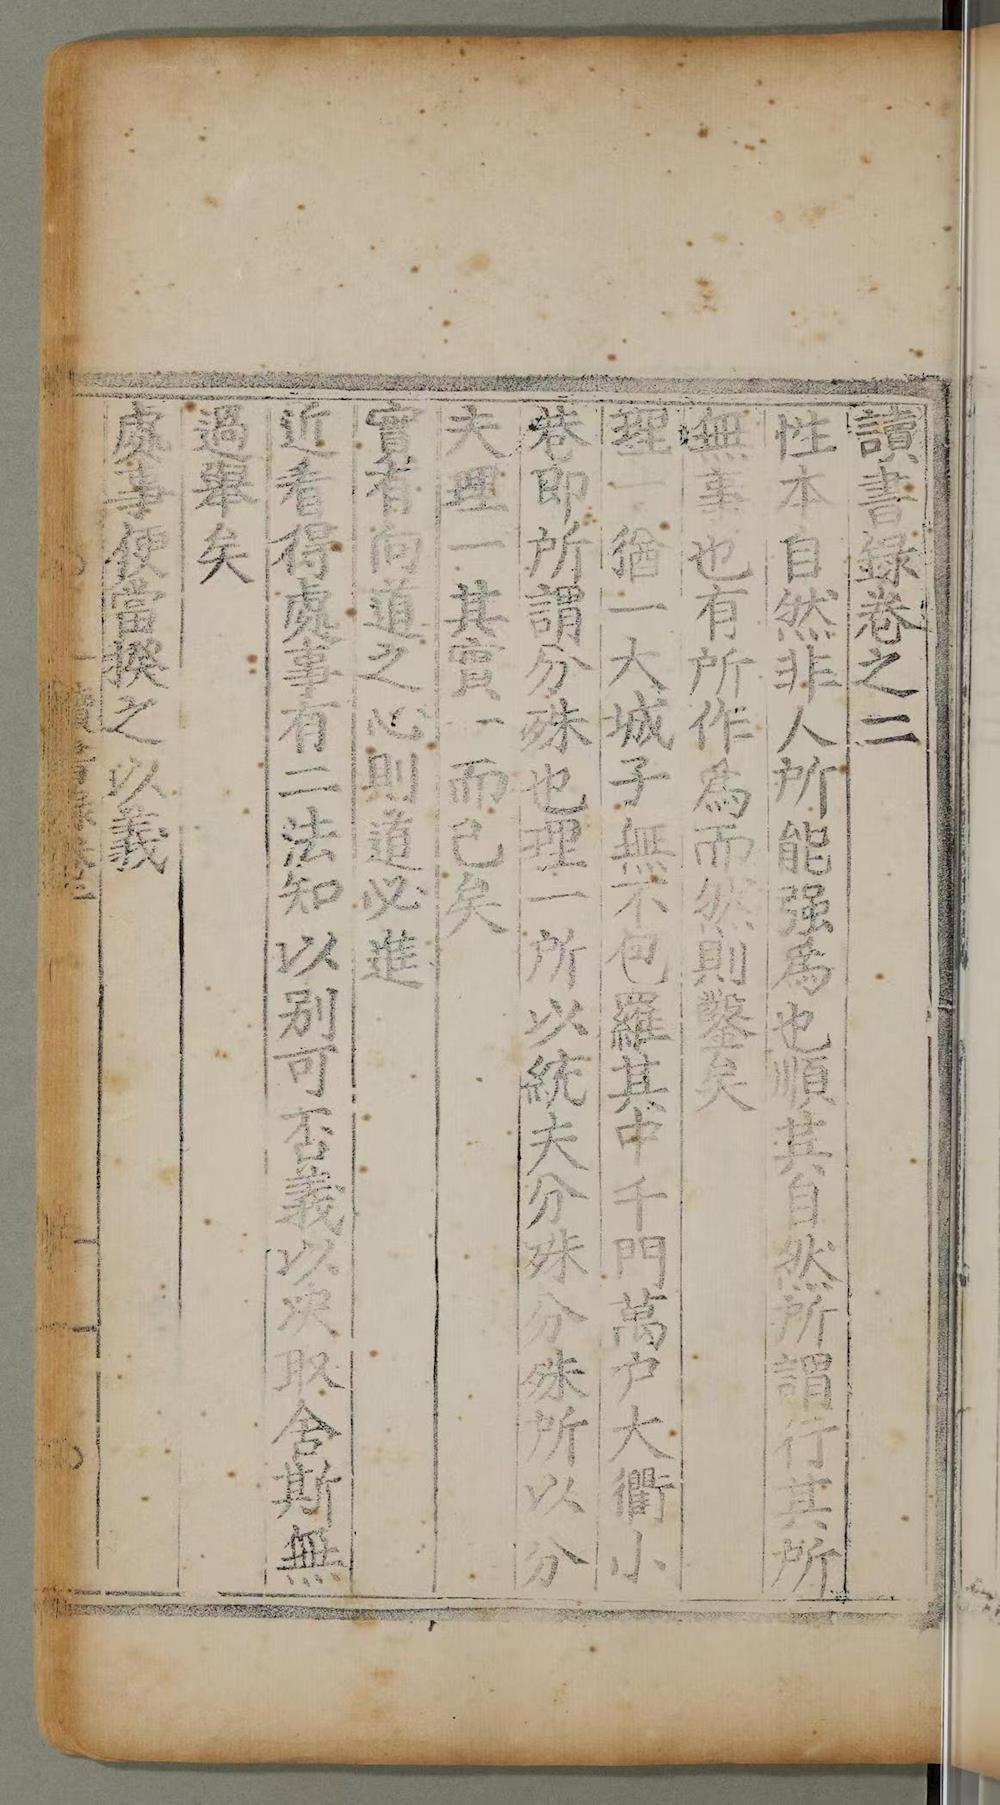 讀書録卷之二
性本自然非人所能强為也順其自然所謂行其所
無事也有所作為而然則鑿矣
理一猶一大城子無不包羅其中千門萬户大衢小
巷即所謂分殊也理一所以統夫分殊分殊所以分
夫理一其實一而已矣
實有向道之心則道必進
近看得處事有二法知以别可否義以决取舍斯無
過舉矣
處事便當揆之以義